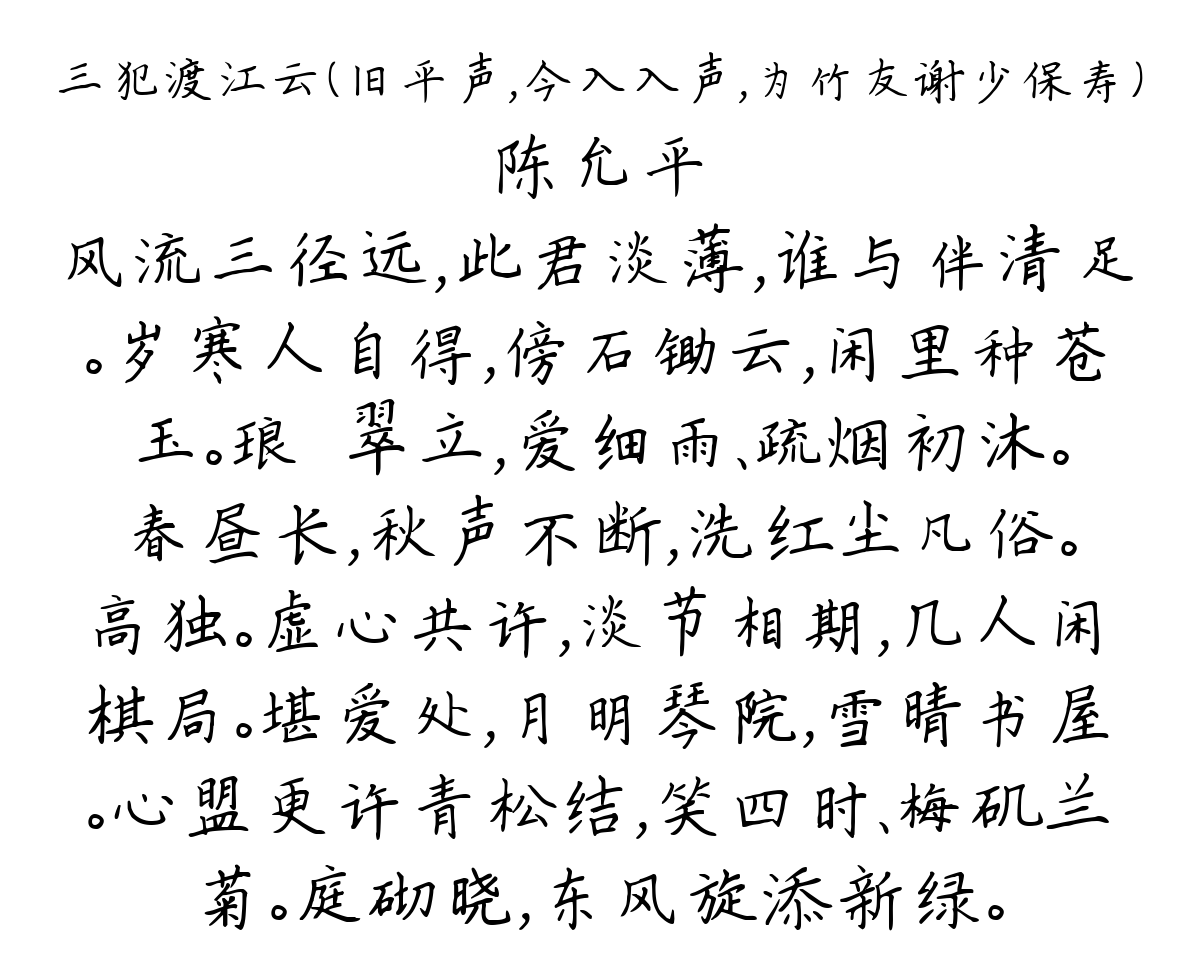 三犯渡江云(旧平声,今入入声,为竹友谢少保寿)
陈允平
风流三径远,此君淡薄,谁与伴清足
。岁寒人自得,傍石锄云,闲里种苍
玉。琅 翠立,爱细雨、疏烟初沐。
春昼长,秋声不断,洗红尘凡俗。
高独。虚心共许,淡节相期,几人闲
棋局。堪爱处,月明琴院,雪晴书屋
。心盟更许青松结,笑四时、梅矶兰
菊。庭砌晓,东风旋添新绿。